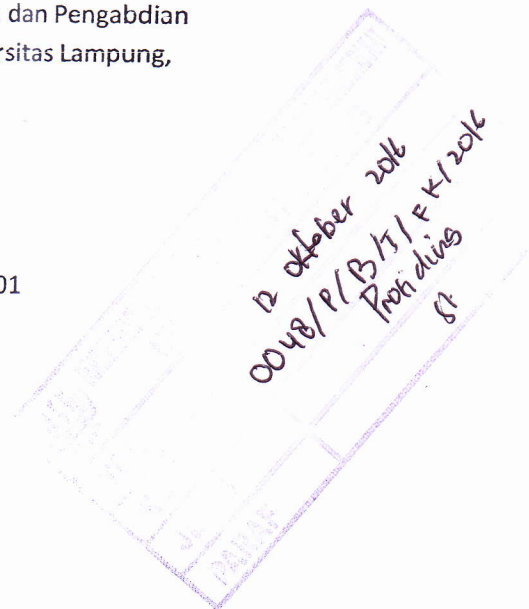 dan Pengabdian
rsitas Lampung,
01
12 Oktober 2016
0048/P/B/I/FK/2016
Prosiding
PARAF